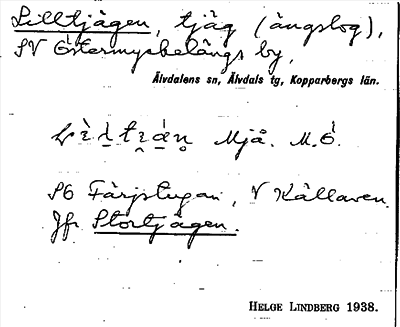 Lilltjägen, tjäg (ängslog),
SV Östermyckelängs by,
Älvdalens sn, Älvdals tg, Kopparbergs län.
Mjå. M.Ö.
SO Färjstugan, V Källaren.
Jfr Stortjägen.
HELGE LINDBERG 1938.